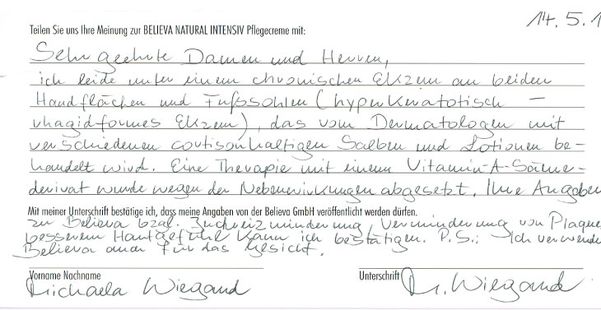 14.5.1
Teilen Sie uns Ihre Meinung zur BELIEVA NATURAL INTENSIV Pflegecreme mit:
Sehr geehrte Damen und Herren,
ich leide unter einem chronischen Ekzem an beiden
Handflächen und Fußsohlen (hyperkeratotisch -
rhagidformes Ekzem), das vom Dermatologen mit
verschiedenen cortisonhaltigen Salben und Lotionen be-
handelt wird. Eine Therapie mit einem Vitamin-A-Säure-
derivat wurde wegen der Nebenwirkungen abgesetzt. Ihre Angaben
Mit meiner Unterschrift bestätige ich, dass meine Angaben von der Believa GmbH veröffentlicht werden dürfen.
zu Believa bzgl. Juckreizminderung, Verminderung von Plaque
besserem Hautgefühl kann ich bestätigen. P.S.: Ich verwende
Believa auch für das Gesicht.
Vorname Nachname
Unterschrift
Michaela Wiegand
M. Wiegand